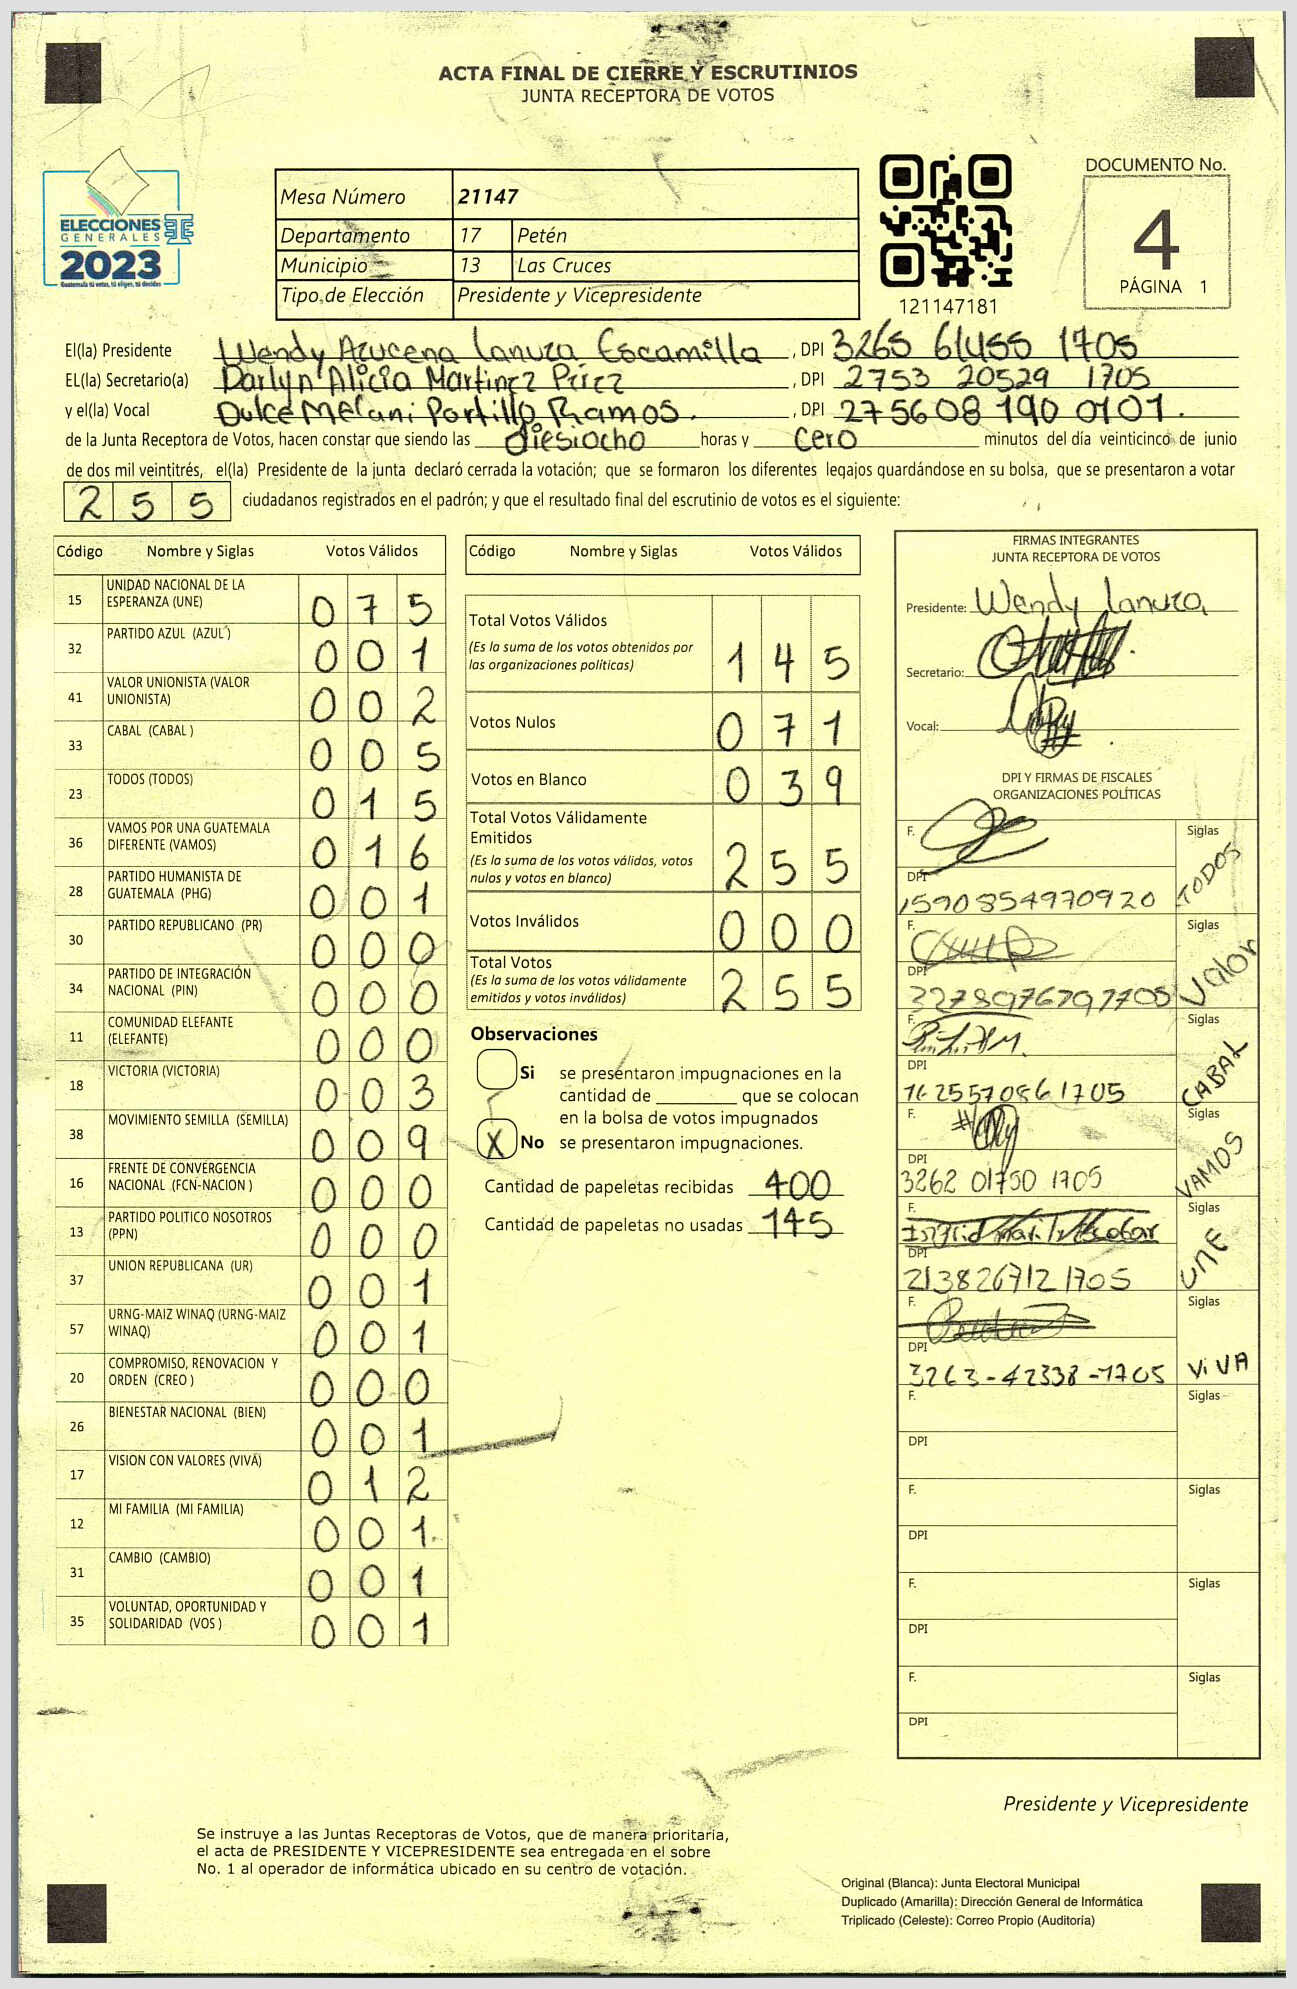 ACTA FINAL DE CIERRE Y ESCRUTINIOS
JUNTA RECEPTORA DE VOTOS
ELECCIONES
GENERALES
2023
Guatemala tú votas, tú eliges, tú decides
Mesa Número 21147
Departamento 17 Petén
Municipio 13 Las Cruces
Tipo de Elección Presidente y Vicepresidente
121147181
DOCUMENTO No.
4
PÁGINA 1
El(la) Presidente Wendy Azucena Lanuza Escamilla, DPI 3265 61455 1705
EL(la) Secretario(a) Darlyn Alicia Martinez Pérez, DPI 2753 20529 1705
y el(la) Vocal Dulce Melani Portillo Ramos., DPI 2756 08 190 0101.
de la Junta Receptora de Votos, hacen constar que siendo las diesiocho horas y cero minutos del día veinticinco de junio
de dos mil veintitrés, el(la) Presidente de la junta declaró cerrada la votación; que se formaron los diferentes legajos guardándose en su bolsa, que se presentaron a votar
255 ciudadanos registrados en el padrón; y que el resultado final del escrutinio de votos es el siguiente:
Código Nombre y Siglas Votos Válidos
15 UNIDAD NACIONAL DE LA ESPERANZA (UNE) 075
32 PARTIDO AZUL (AZUL) 001
41 VALOR UNIONISTA (VALOR UNIONISTA) 002
33 CABAL (CABAL) 005
23 TODOS (TODOS) 015
36 VAMOS POR UNA GUATEMALA DIFERENTE (VAMOS) 016
28 PARTIDO HUMANISTA DE GUATEMALA (PHG) 001
30 PARTIDO REPUBLICANO (PR) 000
34 PARTIDO DE INTEGRACIÓN NACIONAL (PIN) 000
11 COMUNIDAD ELEFANTE (ELEFANTE) 000
18 VICTORIA (VICTORIA) 003
38 MOVIMIENTO SEMILLA (SEMILLA) 009
16 FRENTE DE CONVERGENCIA NACIONAL (FCN-NACION) 000
13 PARTIDO POLITICO NOSOTROS (PPN) 000
37 UNION REPUBLICANA (UR) 001
57 URNG-MAIZ WINAQ (URNG-MAIZ WINAQ) 001
20 COMPROMISO, RENOVACION Y ORDEN (CREO) 000
26 BIENESTAR NACIONAL (BIEN) 001
17 VISION CON VALORES (VIVA) 012
12 MI FAMILIA (MI FAMILIA) 001
31 CAMBIO (CAMBIO) 001
35 VOLUNTAD, OPORTUNIDAD Y SOLIDARIDAD (VOS) 001
Código Nombre y Siglas Votos Válidos
Total Votos Válidos 145
(Es la suma de los votos obtenidos por
las organizaciones políticas)
Votos Nulos 071
Votos en Blanco 039
Total Votos Válidamente
Emitidos 255
(Es la suma de los votos válidos, votos
nulos y votos en blanco)
Votos Inválidos 000
Total Votos 255
(Es la suma de los votos válidamente
emitidos y votos inválidos)
Observaciones
Si se presentaron impugnaciones en la
cantidad de ________ que se colocan
en la bolsa de votos impugnados
X No se presentaron impugnaciones.
Cantidad de papeletas recibidas 400
Cantidad de papeletas no usadas 145
FIRMAS INTEGRANTES
JUNTA RECEPTORA DE VOTOS
Presidente: Wendy Lanuza
Secretario:
Vocal:
DPI Y FIRMAS DE FISCALES
ORGANIZACIONES POLÍTICAS
F. Siglas TODOS
DPI 1590854970920
F. Siglas Valor
DPI
F. Siglas CABAL
DPI 1625570861705
F. Siglas VAMOS
DPI 3262 01750 1705
F. Siglas UNE
DPI 213826712 1705
F. Siglas VIVA
DPI 3263-42338-1705
F. Siglas
DPI
F. Siglas
DPI
F. Siglas
DPI
F. Siglas
DPI
Presidente y Vicepresidente
Se instruye a las Juntas Receptoras de Votos, que de manera prioritaria,
el acta de PRESIDENTE Y VICEPRESIDENTE sea entregada en el sobre
No. 1 al operador de informática ubicado en su centro de votación.
Original (Blanca): Junta Electoral Municipal
Duplicado (Amarilla): Dirección General de Informática
Triplicado (Celeste): Correo Propio (Auditoría)